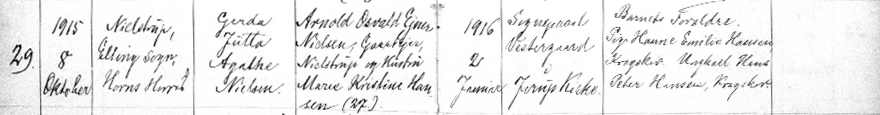 1915 Nielstrup, Gerda Arnold Osvald Ejner 1916 Sognepræst Barnets Forældre.
29. 8 Elling Sogn, Jutta Nielsen, Gaardejer, 2 Vestergaard Pige Hanne Emilie Hansen,
Oktober Horns Herred Agathe Nielstrup og Hustru Januar i Kragskov. Ungkarl Hans
Nielsen. Marie Kristine Han- Jerup Kirke. Peter Hansen, Kragskov.
sen (27).